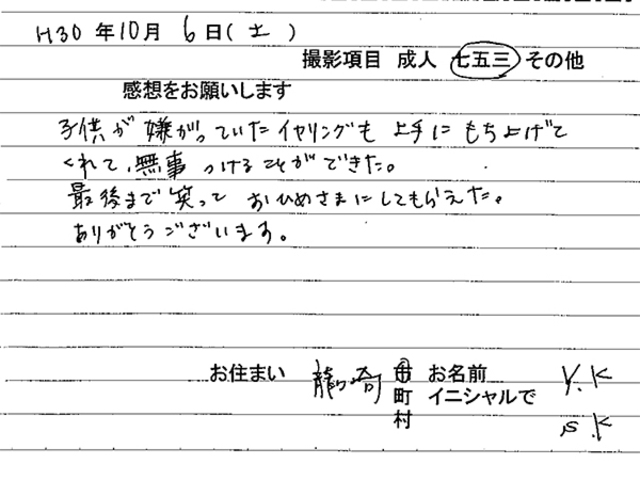 H30年10月6日(土)
撮影項目 成人 七五三 その他
感想をお願いします
子供が嫌がっていたイヤリングも上手にもち上げて
くれて、無事つけることができた。
最後まで笑って おひめさまにしてもらえた。
ありがとうございます。
お住まい 龍ヶ崎 市 お名前 Y.K
町 イニシャルで
村 S.K